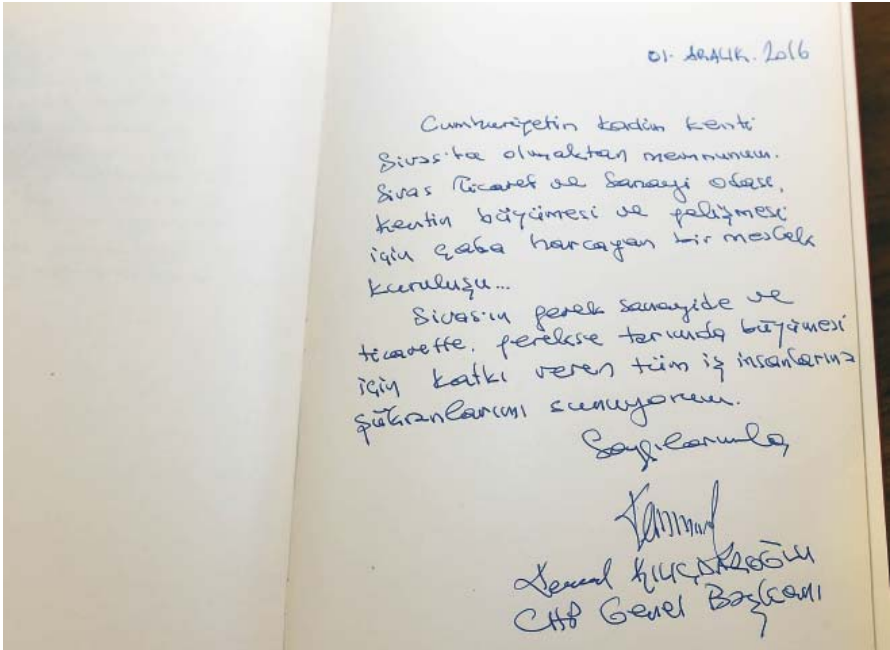 01. ARALIK. 2016
Cumhuriyetin kadim kenti
Sivas'ta olmaktan memnunum.
Sivas Ticaret ve Sanayi odası,
kentin büyümesi ve gelişmesi
için çaba harcayan bir meslek
kuruluşu...
Sivas'ın gerek sanayide ve
ticarette, gerekse tarımda büyümesi
için katkı veren tüm iş insanlarına
şükranlarımı sunuyorum.
Saygılarımla,
Kemal KILIÇDAROĞLU
CHP Genel Başkanı